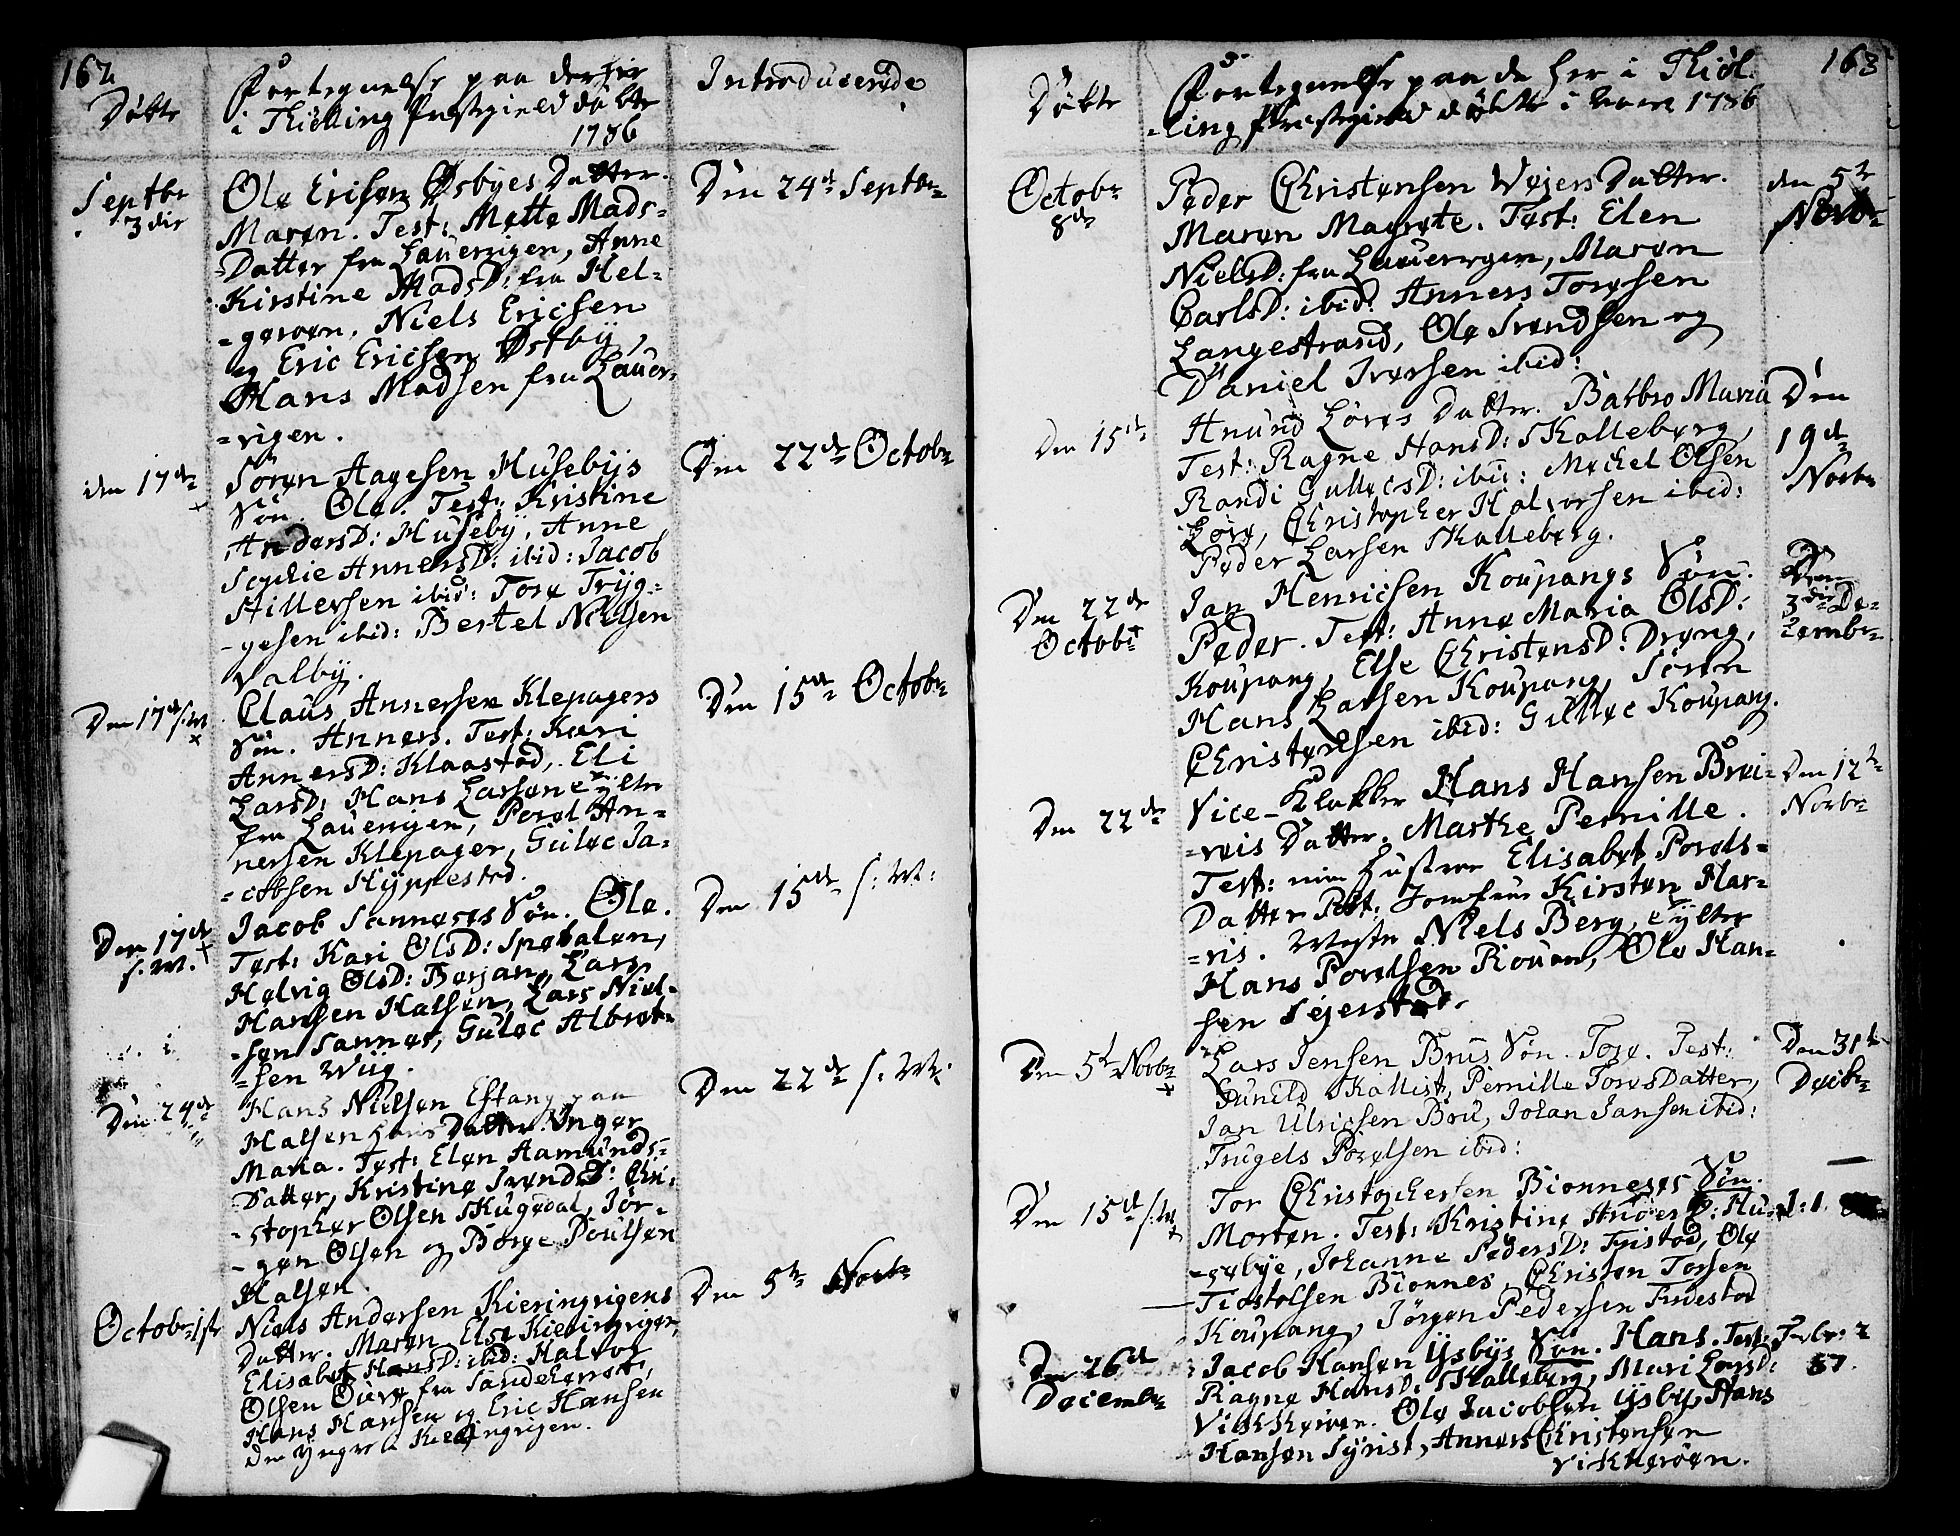 162
Døbte
Fortegnelse paa de her
i Thiølling Præstegield døbte
1786
Introducerede
Septbr
3die
Ole Ericsen Østbyes Datter.
Maren. Test: Mette Mads-
-Datter fra Lauerrigen, Anne
Kirstine MadsD: fra Hel-
-geroen. Niels Ericsen
og Eric Ericsen Østby,
Hans Madsen fra Lauer-
-rigen.
Den 24de Septbr
den 17de
Søren Aagesen Husebÿs
Søn. Ole. Test: Kristine
AndersD: Husebÿ, Anne
Sophie AnnersD: ibid: Jacob
Hillersen ibid: Tore Trÿg-
-gesen ibid: Bertel Nielsen
Valbÿ.
Den 22de Octobr
Den 17de s: M
Claus Annersen Klepagers
Søn. Anners. Test: Kari
AnnersD: Klaastad, Eli
LarsD: Hans Larsen Eÿlter
fra Lauerrigen, Povel An-
nersen Klepager, Guløc Ja-
-cobsen Hÿppestad.
Den 15de Octobr
Den 17de
s: M.
Jacob Sanneses Søn. Ole.
Test: Kari OlsD: Spetalen,
Helvig OlsD: Berjan, Lars
Hansen Halsen, Lars Niel-
-sen Sannes, Guløc Albret-
-sen Wiig.
Den 15de s: M:
Den 24de
Hans Nielsen Estang paa
Halsen hans Datter. Inger
Maria. Test: Elen Aamunds-
Datter, Kristine IvendsD: Chri-
-stopher Olsen Skugedal, Jør-
-gen Olsen og Børge Poulsen
Halsen.
Den 22de s: M:
Octobr 1ste
Niels Andersen Kieringrigens
Datter. Maren Else Kieringrigen,
Elisabet HansD: ibid: Halvor
Olsen Ouere fra Sandeherret,
Hans Hansen og Eric Hansen
den Yngre i Kieringrigen.
Den 5te Novbr
163
Døbte
Fortegnelse paa de her i Thiøl-
-ling Præstegield døbte i Aaret 1786
Octobr
8de
Peder Christensen Wejers Datter.
Maren Magrete. Test: Elen
NielsD: fra Lauerrigen, Maren
CarlsD: ibid: Anners Toresen
Langestrand, Ole Svendsen og
Daniel Iversen ibid:
den 5te
Novbr
Den 15de
Anund Løves Datter. Barbro Maria
Test: Ragne HansD: Skalleberg,
Randi GulløcsD: ibid: Mickel Olsen
Løve, Christopher Halvorsen ibid:
Peder Larsen Skalleberg.
Den
19de
Novbr
Den 22de
Octobr
Jan Henricsen Koupangs Søn.
Peder. Test: Anne Maria OlsD:
Koupang, Else ChristensD: Dreng,
Hans Larsen Koupang, Søren
Christensen ibid: Gulløc Koupang.
Den
3die De-
cembr
Den 22de
Vice-Klokker Hans Hansen Brei-
-veis Datter. Marthe Pernille.
Test: min Hustroe Elisabet Povels-
Datter Jomfrue Kirsten Har-
-ris. Niels Berg, Eÿlter
Hans Povelsen Rouen, Ole Han-
sen Sejersted.
Den 12te
Novbr
Den 5te Novbr
Lars Jensen Brus Søn. Tore. Test:
Gunild Skallist, Pernille ToresDatter,
Jan Ulricsen Bru, Johan Jansen ibid:
Trugels Povelsen ibid:
Den 31te
Decbr
Den 15de s: M
Tor Christophersen Bionneses Søn.
Morten. Test: Kristine AndersD: Hu-
-sebye, Johanne PedersD: Fristad, Ole
Tiostolsen Bionnes, Christen Torsen
Koupang, Jørgen Pedersen Fristad
Den 26de
Decembr
Jacob Hansen Ijsbÿs Søn. Hans. Test:
Ragne HansD: Skalleberg, Mari LarsD:
Viskherøen. Ole Jacobsen Ijsby, Hans
Hansen Sÿrist, Anners Christensen
Viskherøen.
Febr: 2
87.